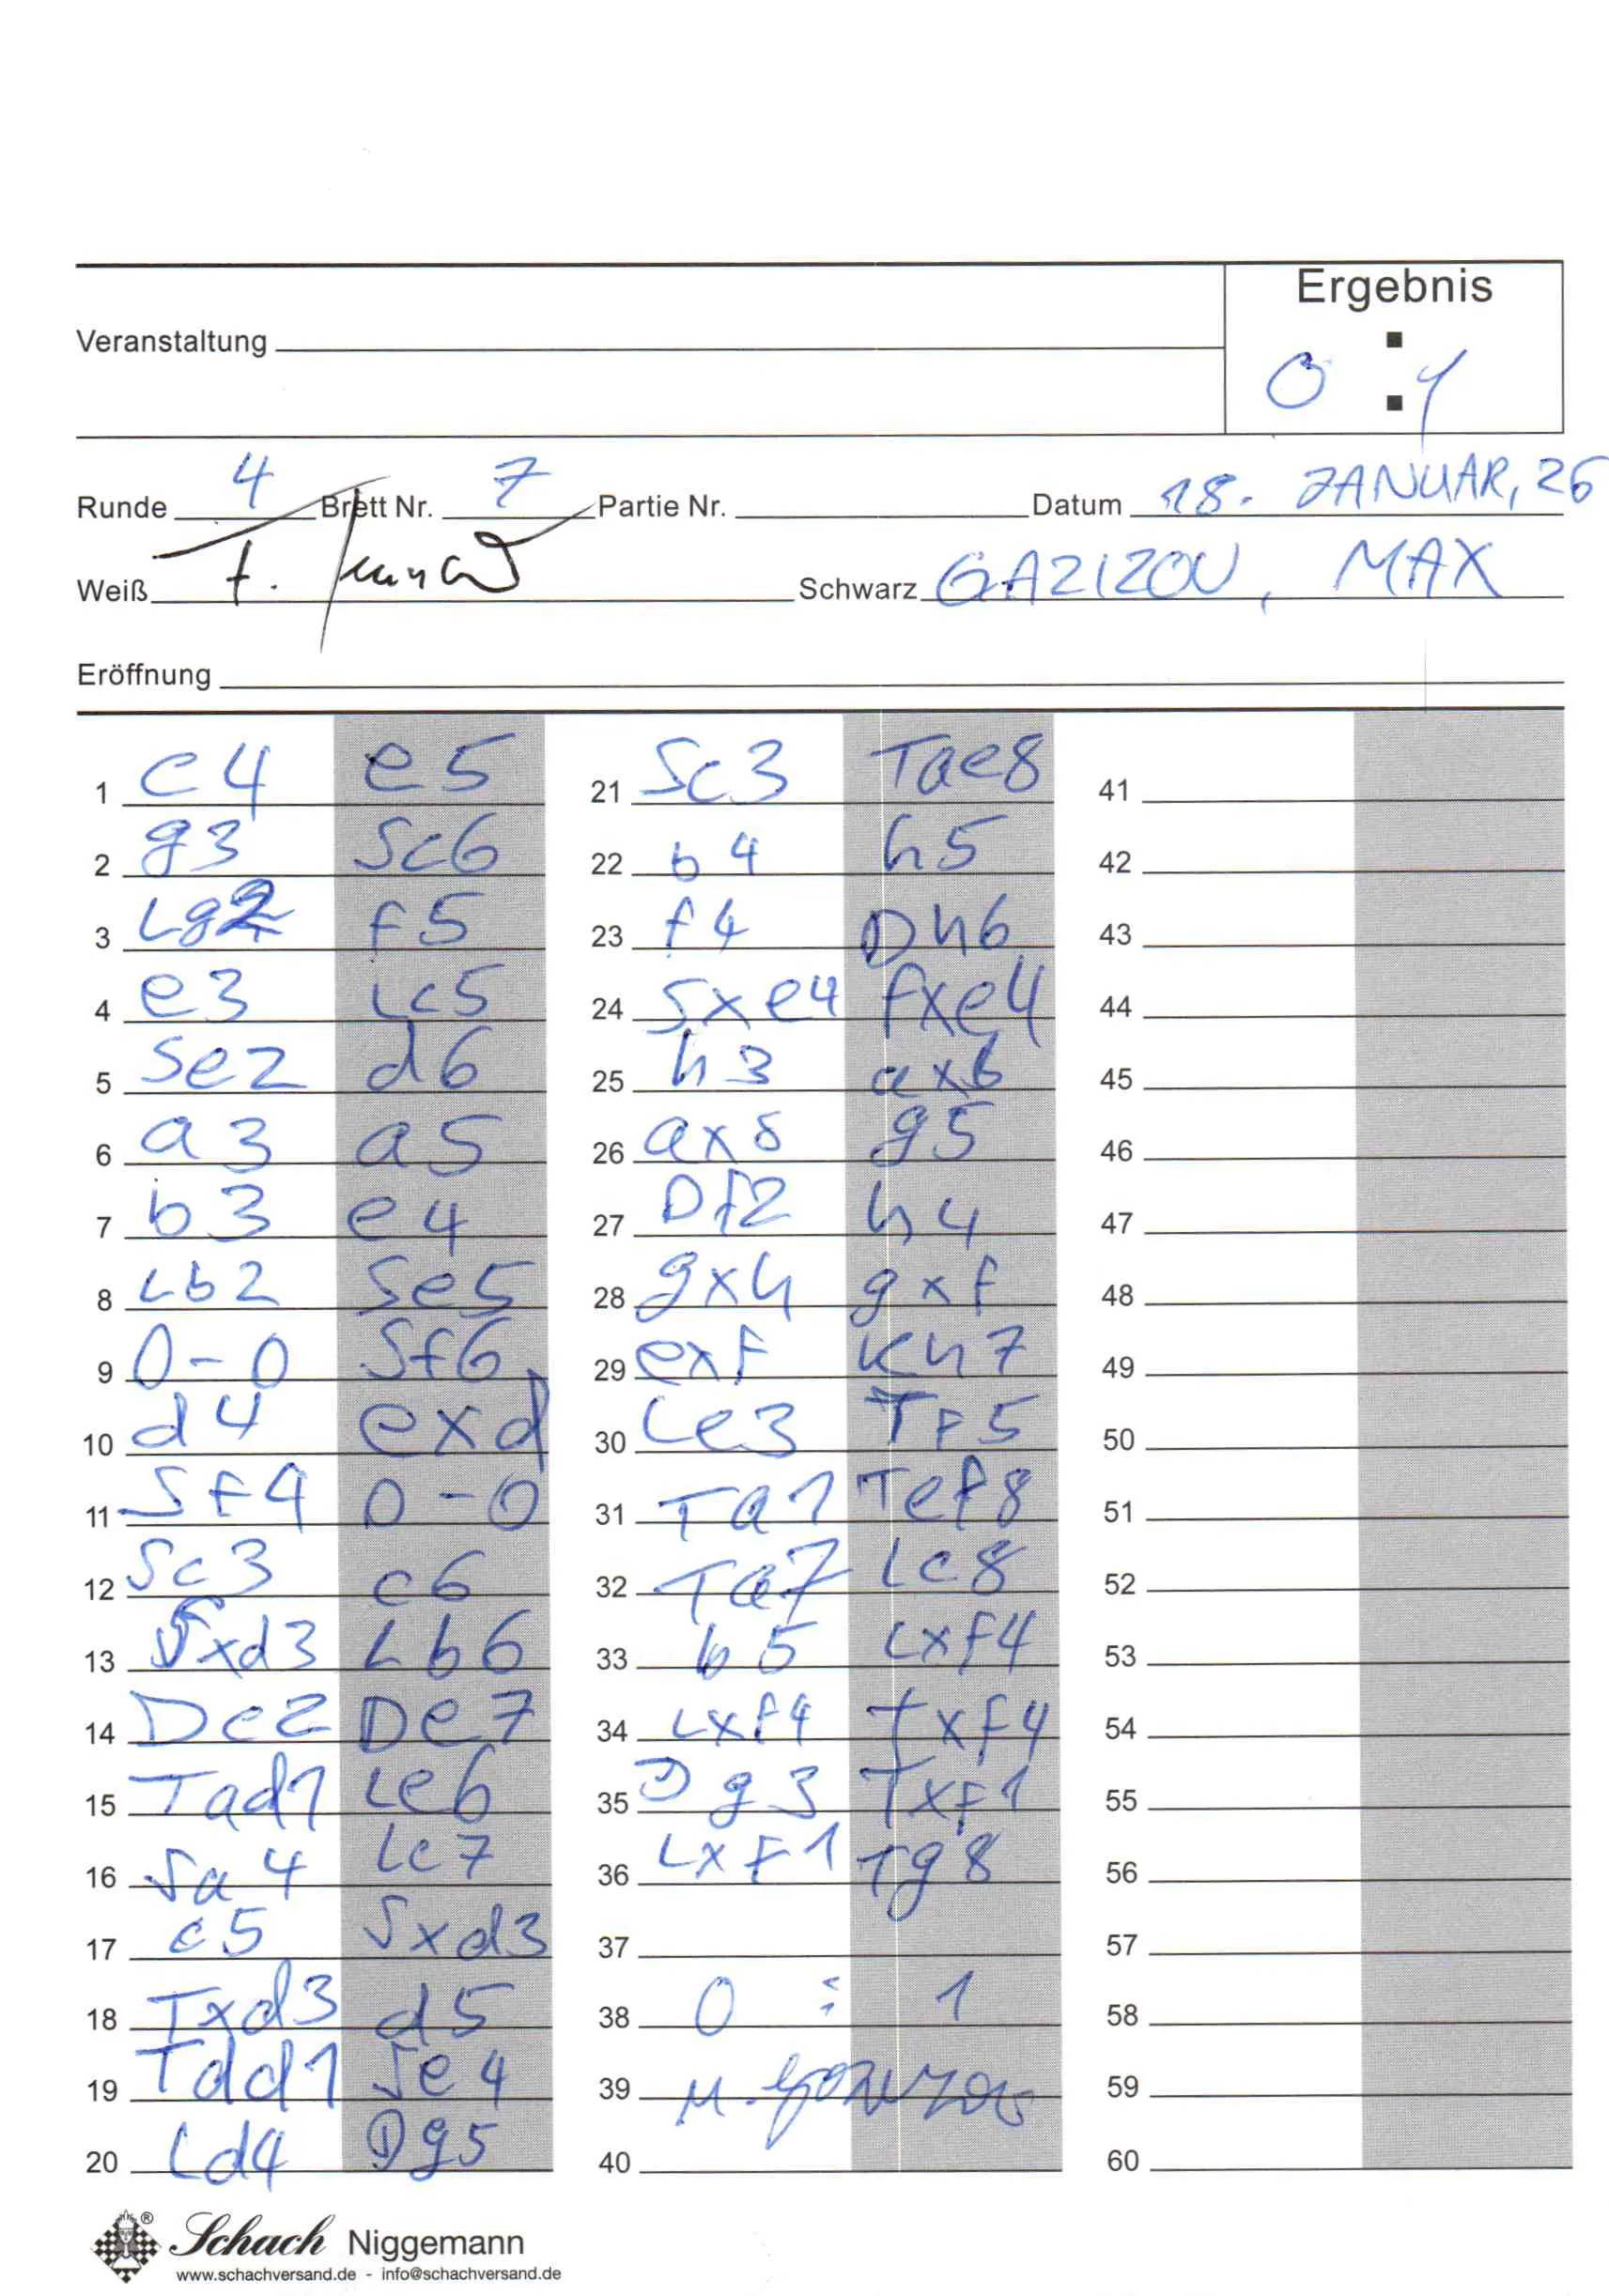 Ergebnis
Veranstaltung
0 : 1
Runde 4 Brett Nr. 7 Partie Nr. Datum 18. JANUAR, 26
Weiß Schwarz GAZIZOV, MAX
Eröffnung
1 c4 e5 21 Sc3 Tae8 41
2 g3 Sc6 22 b4 h5 42
3 Lg2 f5 23 f4 Dh6 43
4 e3 Lc5 24 Sxe4 fxe4 44
5 Se2 d6 25 h3 axb 45
6 a3 a5 26 axb g5 46
7 b3 e4 27 Df2 h4 47
8 Lb2 Se5 28 gxh gxf 48
9 0-0 Sf6 29 exf Kh7 49
10 d4 exd 30 Le3 Tf5 50
11 Sf4 0-0 31 Ta1 Tef8 51
12 Sc3 c6 32 Ta7 Lc8 52
13 Sxd3 Lb6 33 b5 Lxf4 53
14 Dc2 De7 34 Lxf4 Txf4 54
15 Tad1 Le6 35 Dg3 Txf1 55
16 Sa4 Lc7 36 Lxf1 Tg8 56
17 c5 Sxd3 37 57
18 Txd3 d5 38 0 : 1 58
19 Tdd1 Se4 39 59
20 Ld4 Dg5 40 60
® Schach Niggemann
www.schachversand.de - info@schachversand.de